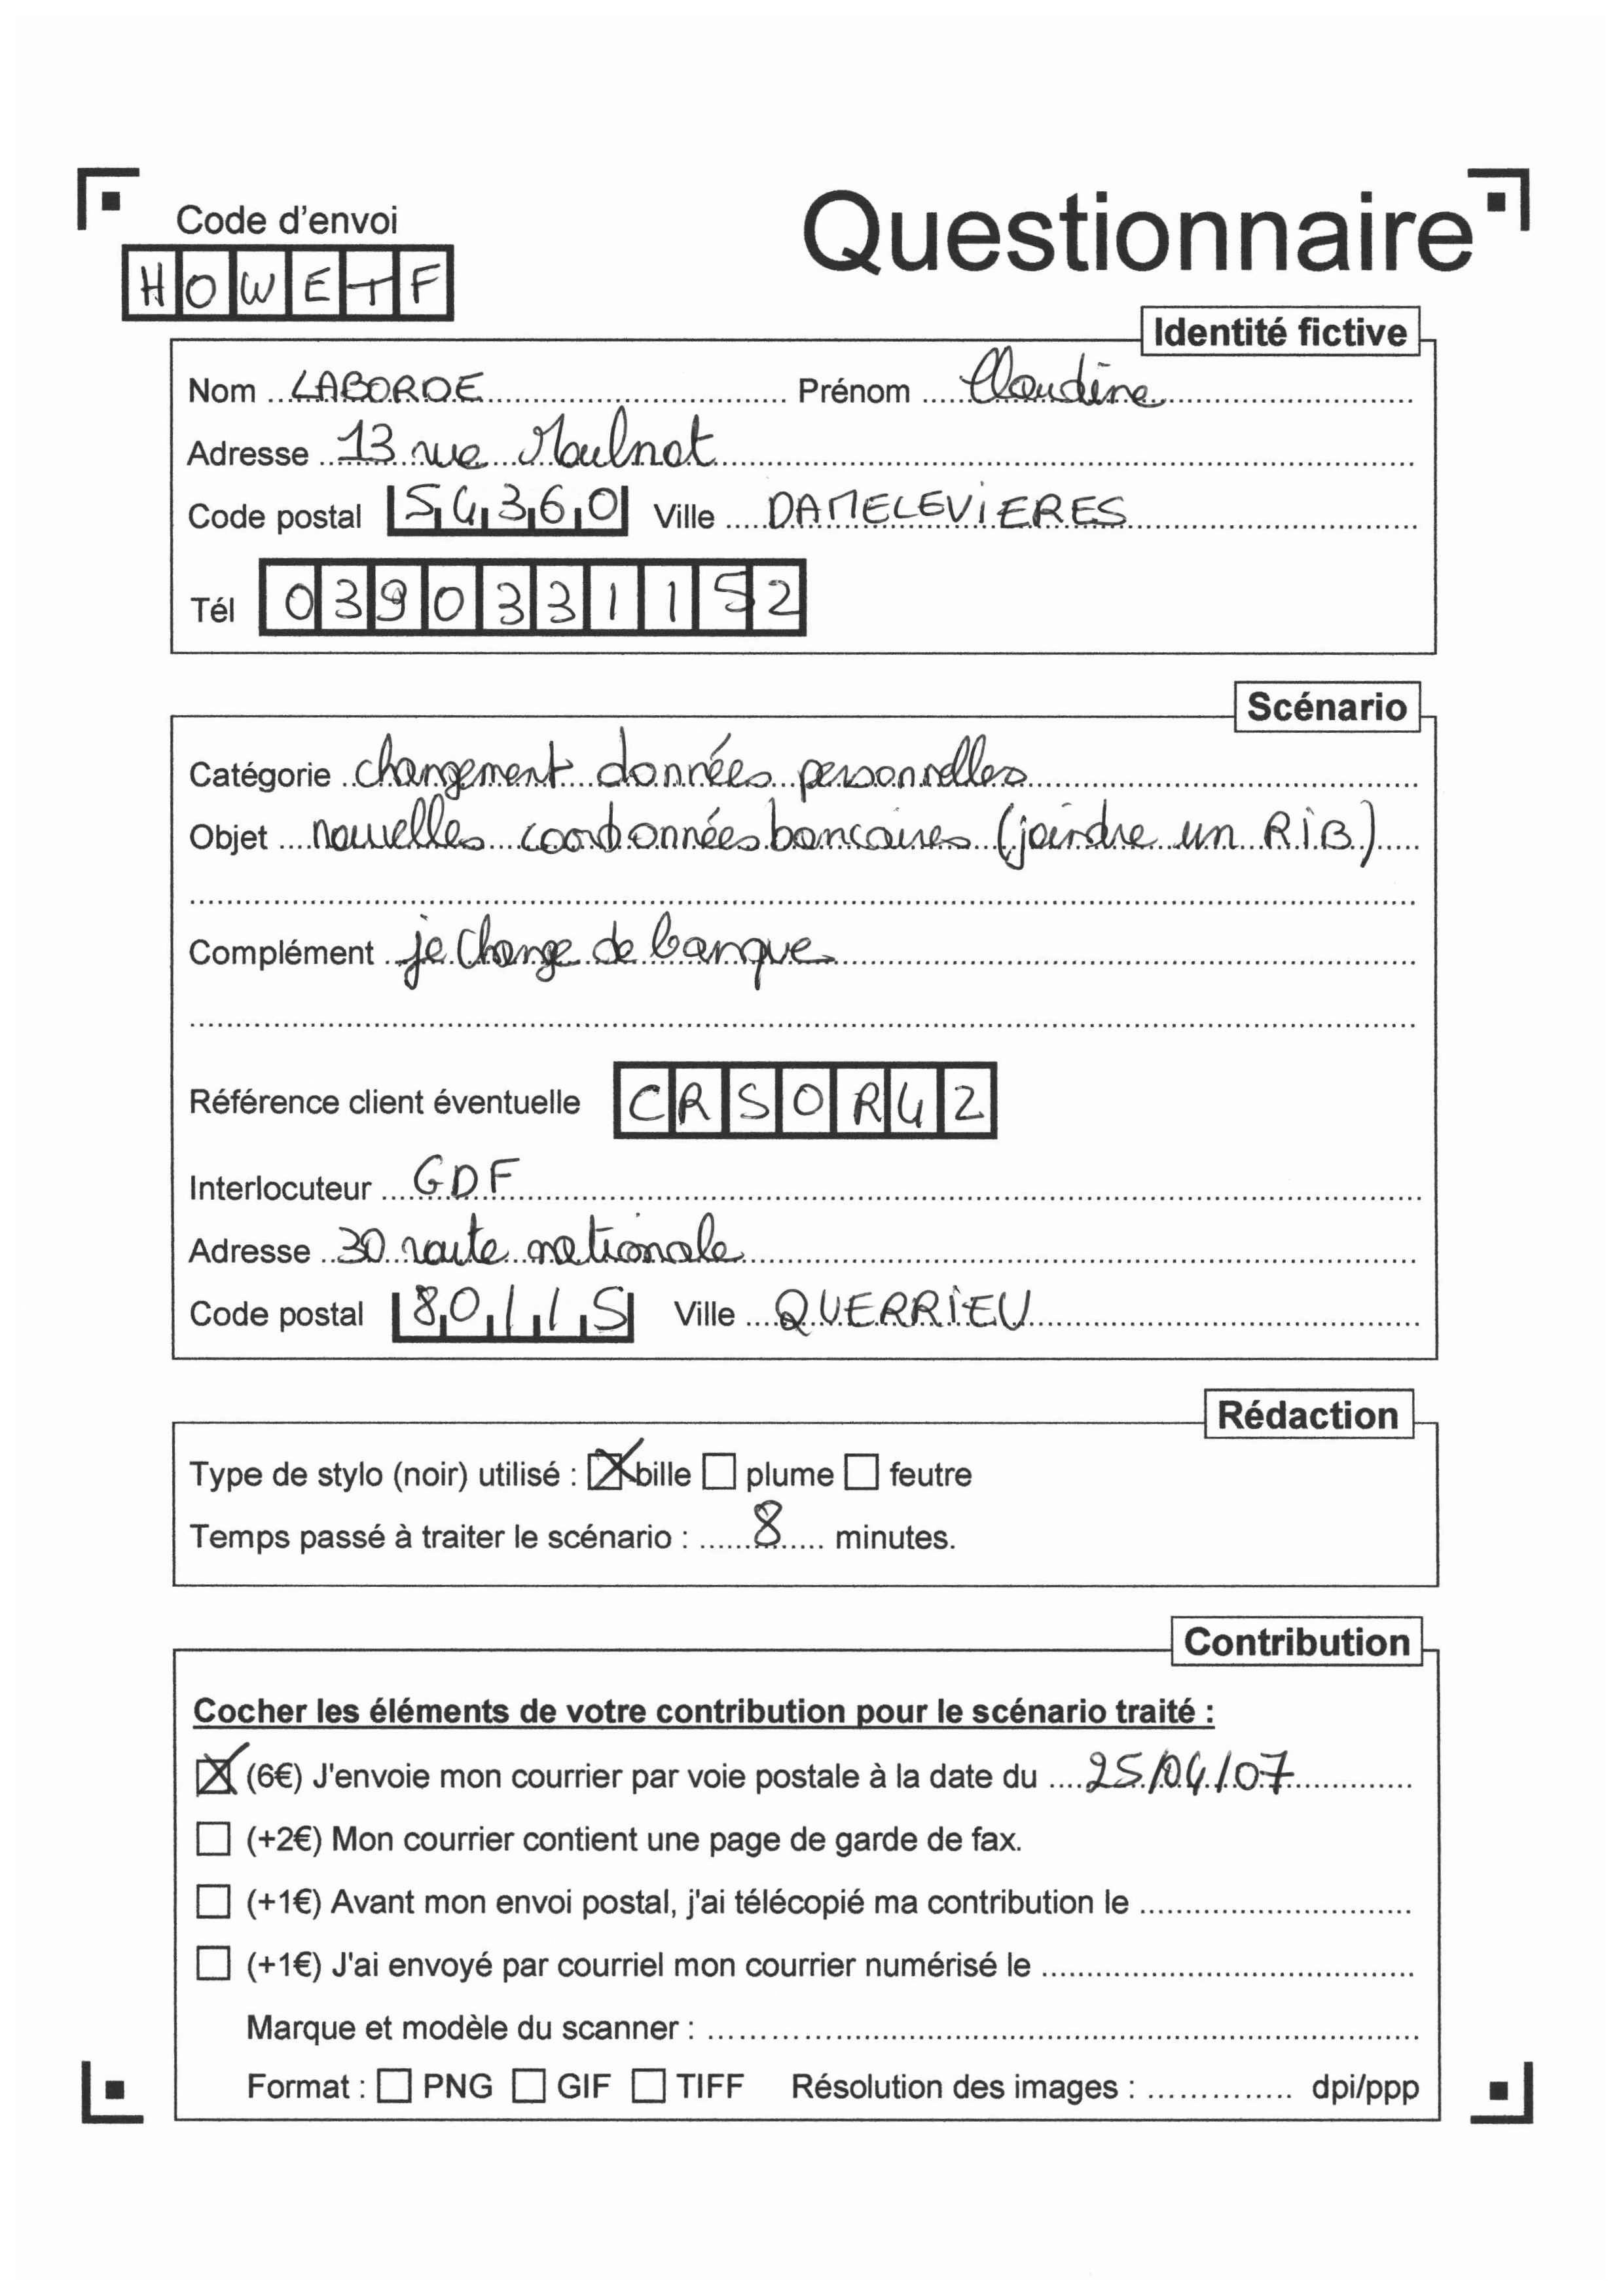 Code d'envoi
Questionnaire
HOWETF
Identité fictive
Nom LABORDE Prénom Claudine
Adresse 13 rue Moulnot
Code postal 54360 Ville DAMELEVIERES
Tél 0390331152
Scénario
Catégorie changement données personnelles
Objet nouvelles coordonnées bancaires (joindre un RIB)
Complément je change de banque
Référence client éventuelle CRSOR42
Interlocuteur GDF
Adresse 30 route nationale
Code postal 80115 Ville QUERRIEU
Rédaction
Type de stylo (noir) utilisé : bille plume feutre
Temps passé à traiter le scénario : 8 minutes.
Contribution
Cocher les éléments de votre contribution pour le scénario traité :
(6€) J'envoie mon courrier par voie postale à la date du 25/04/07
(+2€) Mon courrier contient une page de garde de fax.
(+1€) Avant mon envoi postal, j'ai télécopié ma contribution le
(+1€) J'ai envoyé par courriel mon courrier numérisé le
Marque et modèle du scanner :
Format : PNG GIF TIFF Résolution des images : dpi/ppp